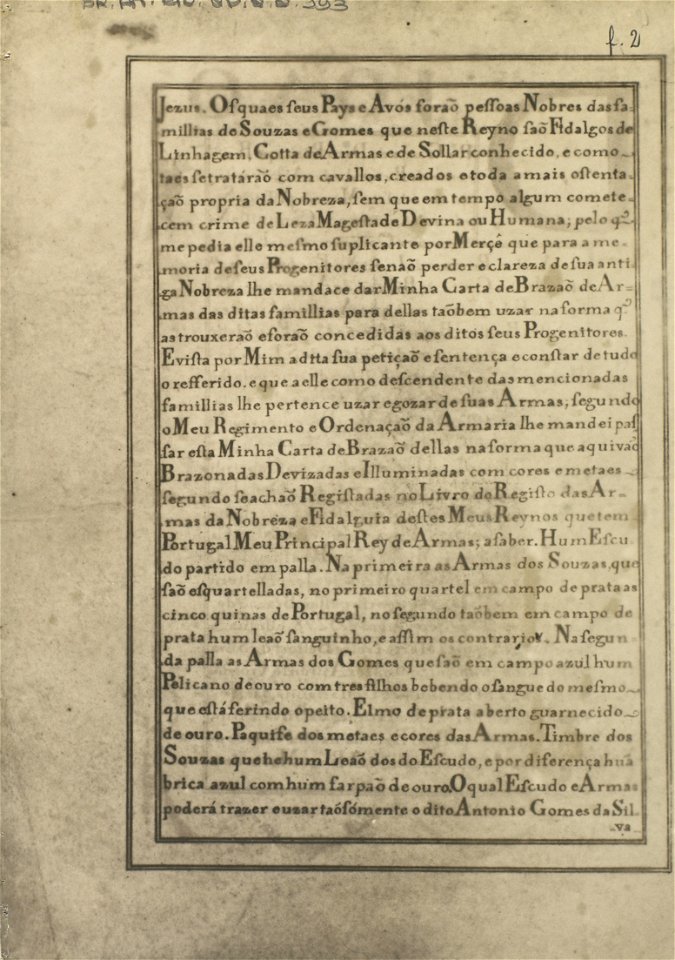 f. 2
Jezus. Os quaes seus Pays e Avós foraõ pessoas Nobres das fa-
millias de Souzas e Gomes que neste Reyno saõ Fidalgos de
Linhagem, Cotta de Armas e de Sollar conhecido, e como
taes se tratáraõ com cavallos, creados e toda a mais ostenta-
çaõ propria da Nobreza, sem que em tempo algum comete-
cem crime de Leza Magestade Devina ou Humana; pelo q̃
me pedia elle mesmo suplicante por Merçê que para a me-
moria de seus Progenitores senaõ perder e clareza de sua anti-
ga Nobreza lhe mandace dar Minha Carta de Brazaõ de Ar-
mas das ditas famillias para dellas taõbem uzar na forma q̃
as trouxeraõ e foraõ concedidas aos ditos seus Progenitores.
E vista por Mim a dita sua petiçaõ e sentença e constar de tudo
o refferido, e que a elle como descendente das mencionadas
famillias lhe pertence uzar e gozar de suas Armas; segundo
o Meu Regimento e Ordenaçaõ da Armaria lhe mandei pas
sar esta Minha Carta de Brazaõ dellas na forma que aqui vaõ
Brazonadas Devizadas e Illuminadas com cores e metaes
segundo se achaõ Registadas no Livro do Registo das Ar-
mas da Nobreza e Fidalguia destes Meus Reynos que tem
Portugal Meu Principal Rey de Armas; a saber. Hum Escu
do partido em palla. Na primeira as Armas dos Souzas, que
saõ esquartelladas, no primeiro quartel em campo de prata as
cinco quinas de Portugal, no segundo taõbem em campo de
prata hum leaõ sanguinho, e assim os contrarios. Na segun
da palla as Armas dos Gomes que saõ em campo azul hum
Pelicano de ouro com tres filhos bebendo o sangue do mesmo
que está ferindo o peito. Elmo de prata aberto guarnecido
de ouro. Paquife dos metaes e cores das Armas. Timbre dos
Souzas que he hum Leaõ dos do Escudo, e por diferença huã
brica azul com hum farpaõ de ouro. O qual Escudo e Armas
poderá trazer e uzar taõ sómente o dito Antonio Gomes da Sil
va